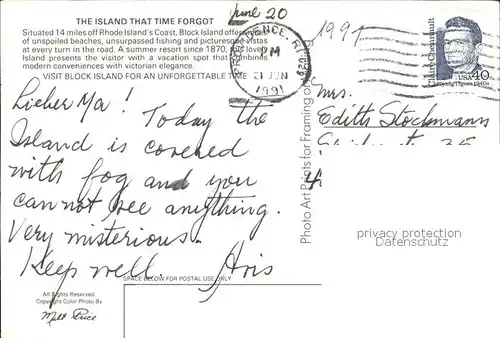 THE ISLAND THAT TIME FORGOT
Situated 14 miles off Rhode Island's Coast, Block Island offers
of unspoiled beaches, unsurpassed fishing and picturesque vistas
at every turn in the road. A summer resort since 1870, this lovely
Island presents the visitor with a vacation spot that combines
modern conveniences with victorian elegance.
VISIT BLOCK ISLAND FOR AN UNFORGETTABLE TIME
June 20
1991
PROVIDENCE, RI
PM
21 JUN
1991
Claire Chennault
USA 40
Lieber Ma! Today the
Island is covered
with fog and you
can not see anything.
Very misterious.
Keep well. Aris
Mrs.
Edith Stockmann
Photo Art Prints for Framing of
privacy protection
Datenschutz
SPACE BELOW FOR POSTAL USE ONLY
All Rights Reserved
Copyright Color Photo By
Matt Price